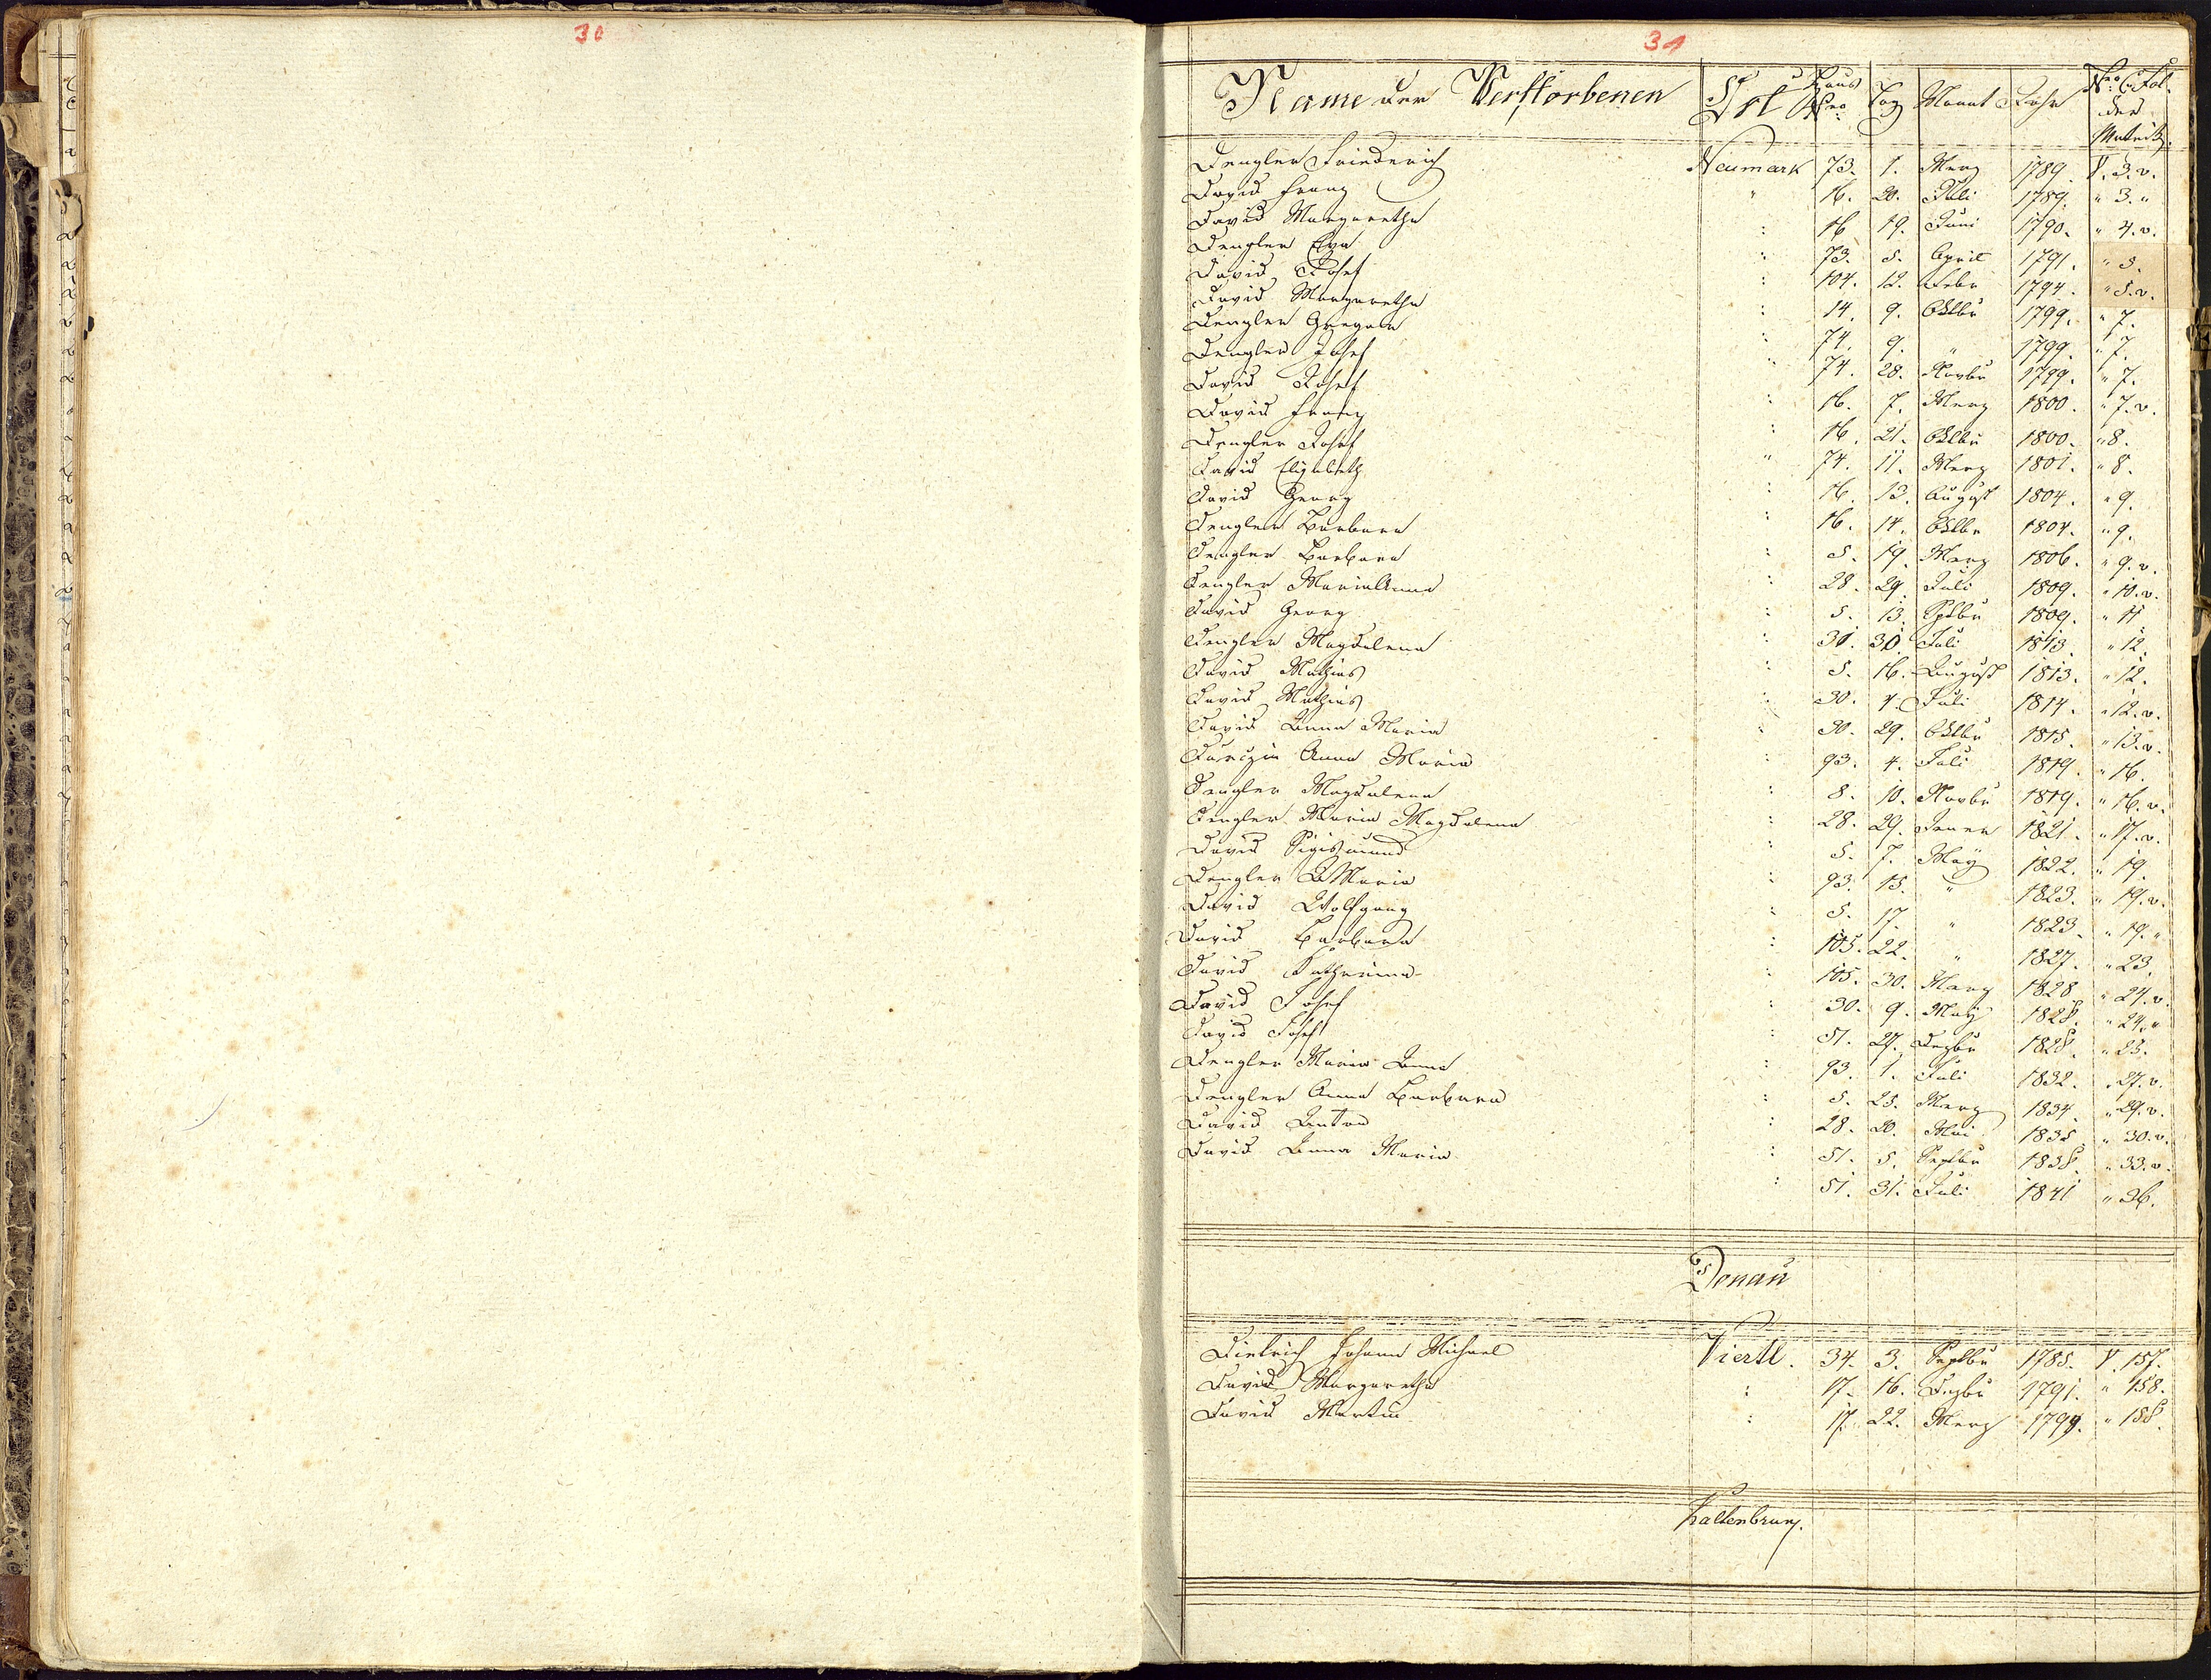 30
31
Name der Verstorbenen Ort Haus Nro: Tag Monat Jahr Nro: C: Fol. der Matrik.
Dengler Friederich Neumark 73. 1. Merz 1789. V. 3. v.
David Franz " 16. 20. Juli 1789. " 3. "
David Margaretha : 16 19. Juni 1790. " 4. v.
Dengler Eva : 73. 5. April 1791. " 5.
David Josef : 104. 12. Febr 1794. " 5. v.
David Margaretha : 14. 9. Oktbr 1799. " 7.
Dengler Gregor : 74. 9. " 1799. " 7.
Dengler Josef " 74. 28. Novbr 1799. " 7.
David Josef : 16. 7. Merz 1800. " 7. v.
David Franz : 16. 21. Oktbr 1800. " 8.
Dengler Josef " 74. 11. Merz 1801. " 8.
David Elisabeth : 16. 13. August 1804. " 9.
David Georg : 16. 14. Oktbr 1804. " 9.
Dengler Barbara : 5. 19. Merz 1806. " 9. v.
Dengler Barbara : 28. 29. Juli 1809. " 10. v.
Dengler MariaAnna : 5. 13. Sptbr 1809. " 11.
David Georg : 30. 30. Juli 1813. " 12.
Dengler Magdalena : 5. 16. August 1813. " 12.
David Mathias : 30. 4. Juli 1814. " 12. v.
David Mathias : 30. 29. Oktbr 1815. " 13. v.
David Anna Maria : 93. 4. Juli 1819. " 16.
Anna Maria : 8. 10. Novbr 1819. " 16. v.
Dengler Magdalena : 28. 29. Jener 1821. " 17. v.
Dengler Maria Magdalena : 5. 7. May 1822. " 19.
David Sigismund : 93. 15. " 1823. " 19. v.
Dengler A Maria : 5. 17. " 1823. " 19. "
David Wolfgang : 105. 22. " 1827. " 23.
David Barbara : 105. 30. Marz 1828 " 24. v.
David Katharina : 30. 9. May 1828. " 24. "
David Josef : 51. 27. Dezbr 1828. " 25.
David Josef : 93. 1. Juli 1832. " 27. v.
Dengler Maria Anna : 5. 25. Merz 1834. " 29. v.
Dengler Anna Barbara : 28. 20. Mai 1835. " 30. v.
David Anton : 51. 5. Septbr 1838. " 33. v.
David Anna Maria : 51. 31. Juli 1841 " 36.
Donau
Dietrich Johann Michael Viertl. 34. 3. Septbr 1785. V. 157.
David Margaretha : 17. 16. Dezbr 1791. " 158.
David Martin : 17. 22. Merz 1799. " 158.
Kaltenbrun.